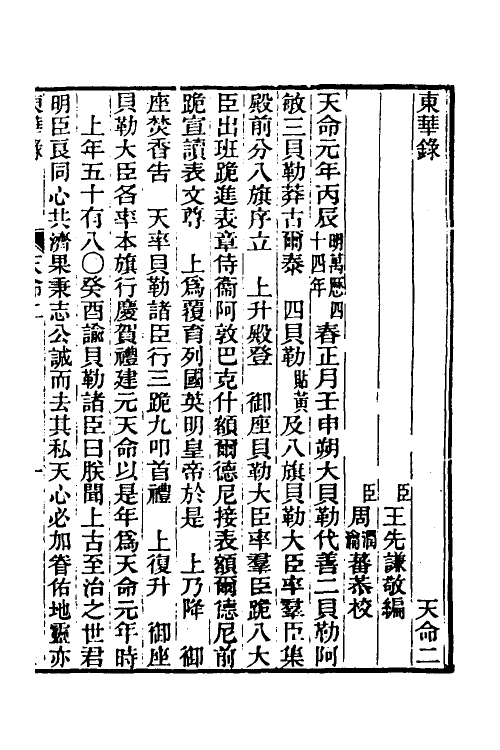 東華錄　天命二
臣王先謙敬編
臣周潤蕃瀹蕃恭校
天命元年丙辰明萬曆四十四年春正月壬申朔大貝勒代善二貝勒阿
敏三貝勒莽古爾泰　四貝勒貼黃及八旗貝勒大臣率羣臣集
殿前分八旗序立　上升殿登　御座貝勒大臣率羣臣跪八大
臣出班跪進表章侍衞阿敦巴克什額爾德尼接表額爾德尼前
跪宣讀表文尊　上爲覆育列國英明皇帝於是　上乃降　御
座焚香告　天率貝勒諸臣行三跪九叩首禮　上復升　御座
貝勒大臣各率本旗行慶賀禮建元天命以是年爲天命元年時
上年五十有八〇癸酉諭貝勒諸臣曰朕聞上古至治之世君
明臣良同心共濟果秉志公誠而去其私天心必加眷佑地靈亦
東華錄　天命二　一